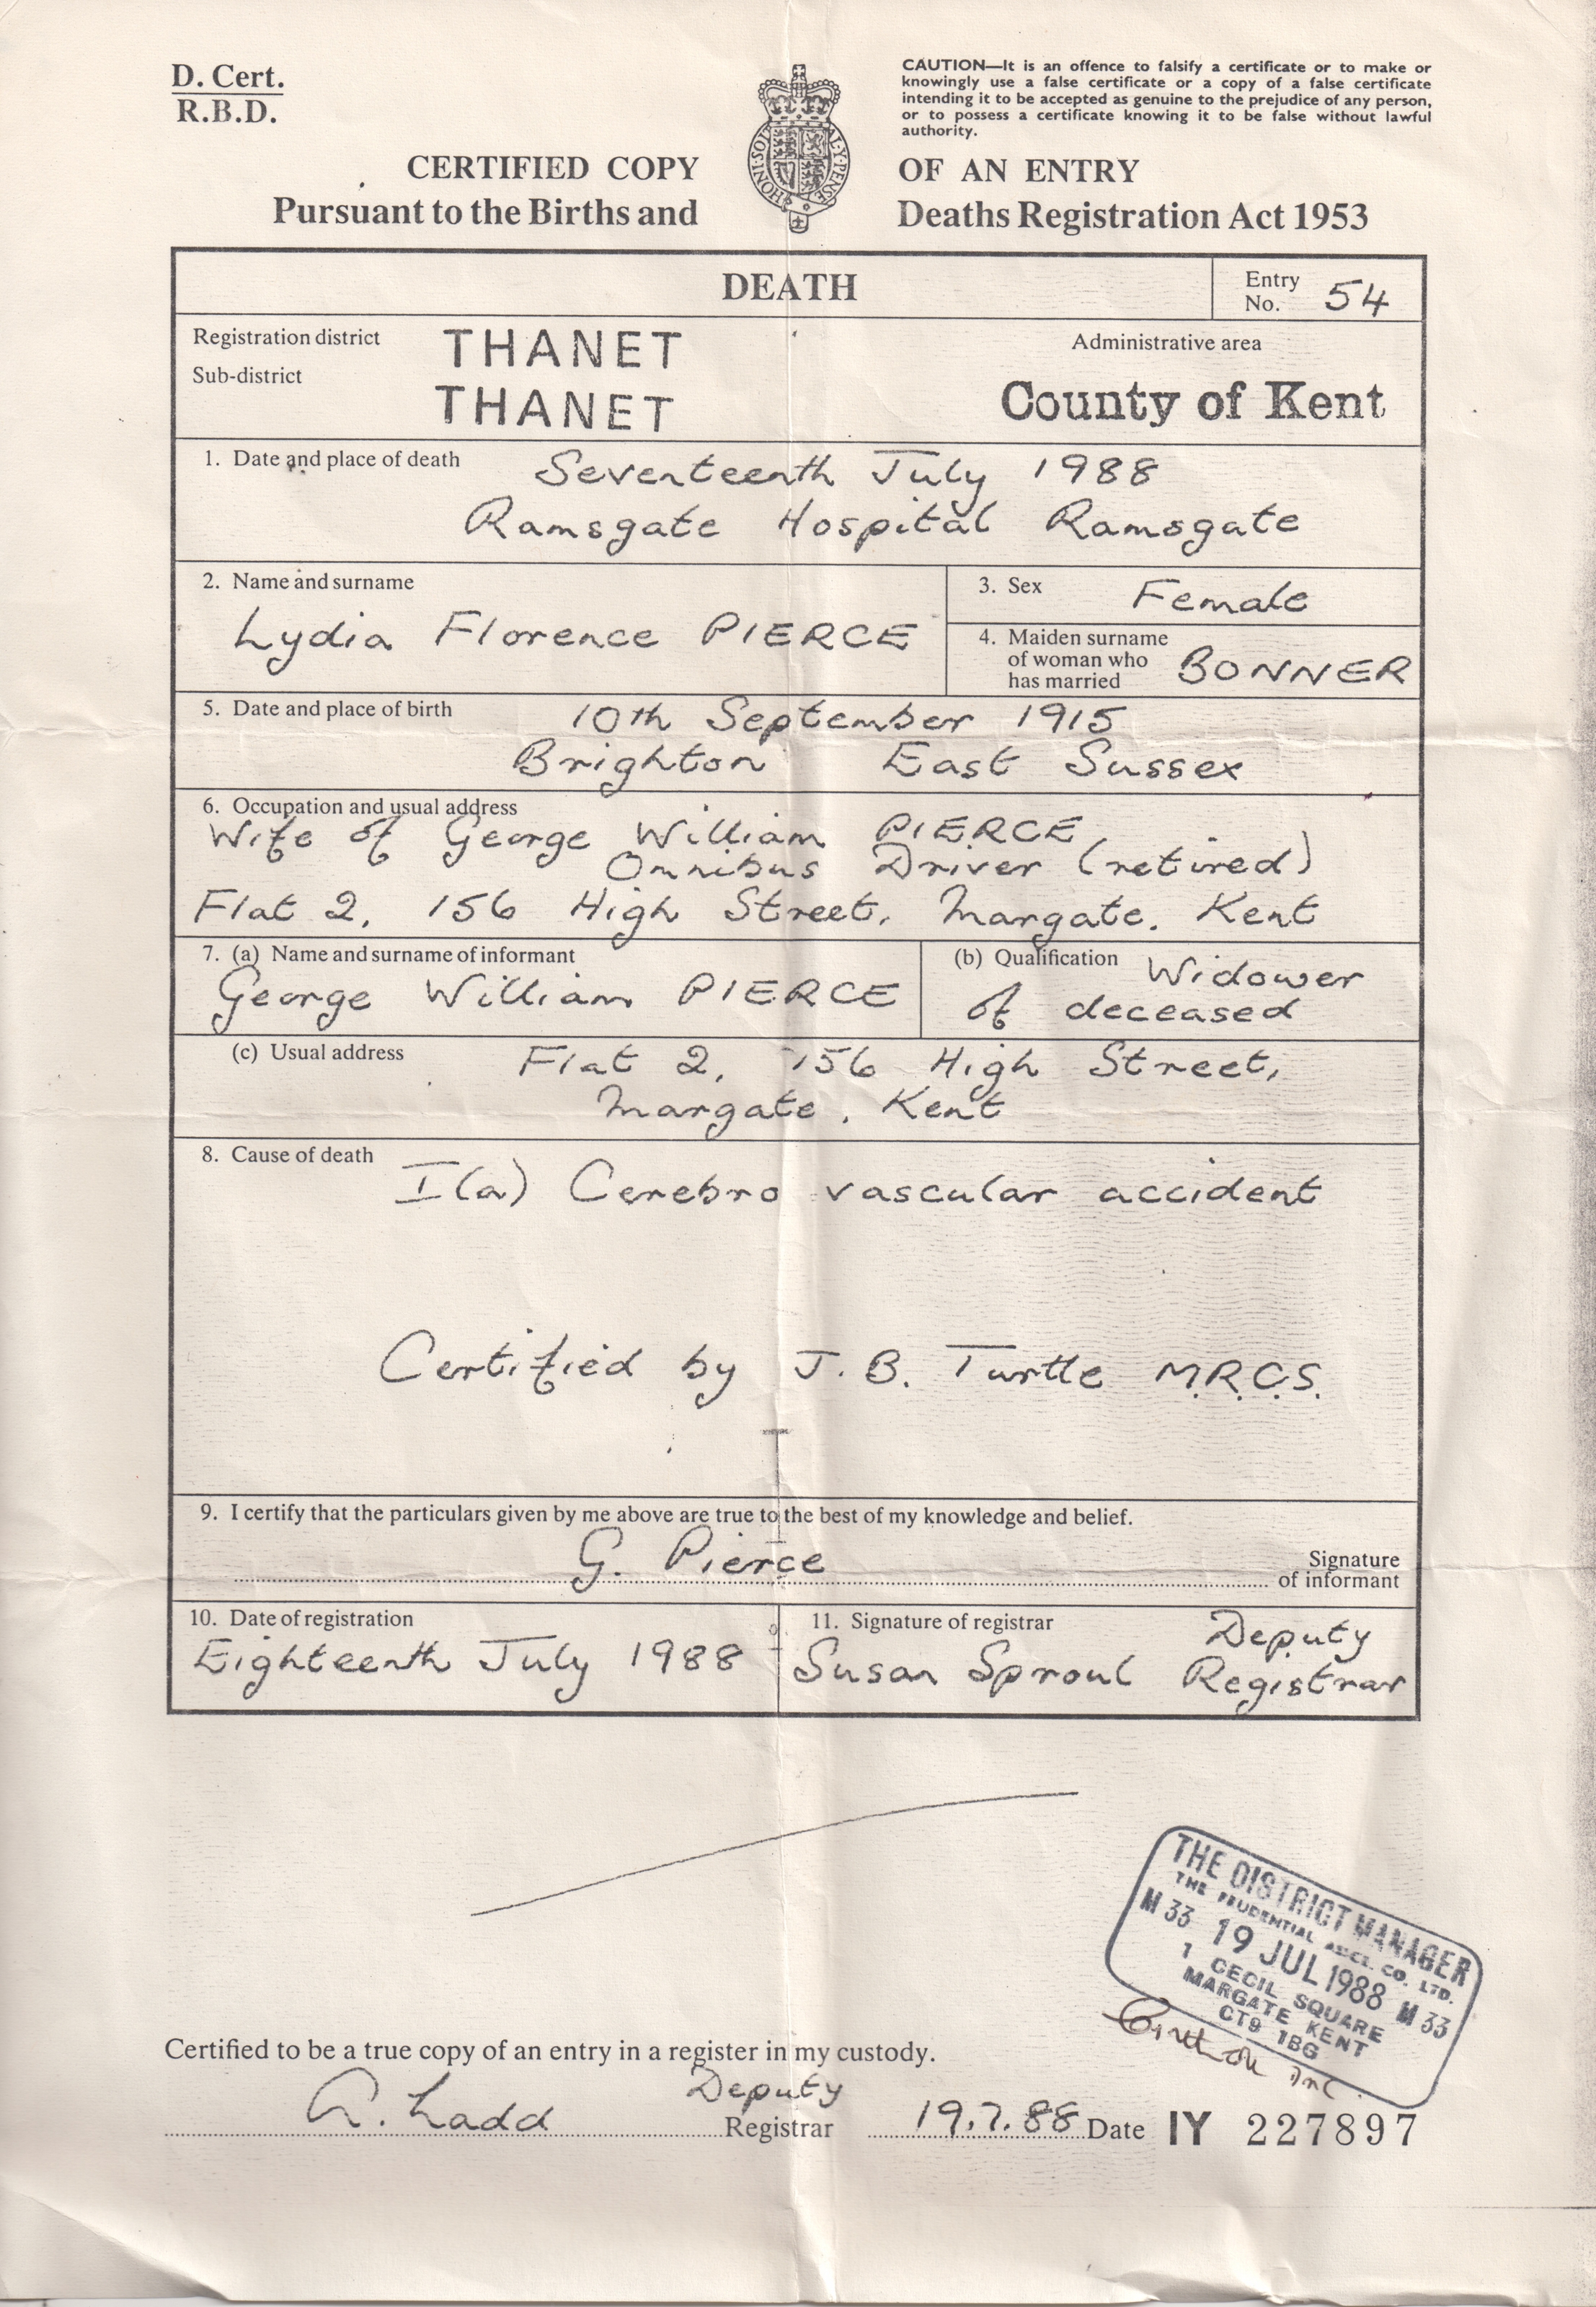 D. Cert.
R.B.D.
CAUTION—It is an offence to falsify a certificate or to make or
knowingly use a false certificate or a copy of a false certificate
intending it to be accepted as genuine to the prejudice of any person,
or to possess a certificate knowing it to be false without lawful
authority.
CERTIFIED COPY OF AN ENTRY
Pursuant to the Births and Deaths Registration Act 1953
HONI·SOIT AL·Y·PENSE
DEATH
Entry
No. 54
Registration district THANET
Sub-district THANET
Administrative area
County of Kent
1. Date and place of death Seventeenth July 1988
Ramsgate Hospital Ramsgate
2. Name and surname
Lydia Florence PIERCE
3. Sex Female
4. Maiden surname
of woman who
has married BONNER
5. Date and place of birth 10th September 1915
Brighton East Sussex
6. Occupation and usual address
Wife of George William PIERCE
Omnibus Driver (retired)
Flat 2, 156 High Street, Margate. Kent
7. (a) Name and surname of informant
George William PIERCE
(b) Qualification Widower
of deceased
(c) Usual address Flat 2, 156 High Street,
Margate. Kent
8. Cause of death
I(a) Cerebro vascular accident
Certified by J. B. Turtle M.R.C.S.
9. I certify that the particulars given by me above are true to the best of my knowledge and belief.
G. Pierce
Signature
of informant
10. Date of registration
Eighteenth July 1988
11. Signature of registrar
Susan Sproul Deputy
Registrar
THE DISTRICT MANAGER
THE PRUDENTIAL ASSCE. CO. LTD.
M 33 19 JUL 1988 M 33
1 CECIL SQUARE
MARGATE KENT
CT9 1BG
Certified to be a true copy of an entry in a register in my custody.
A. Ladd Deputy
Registrar 19.7.88 Date IY 227897